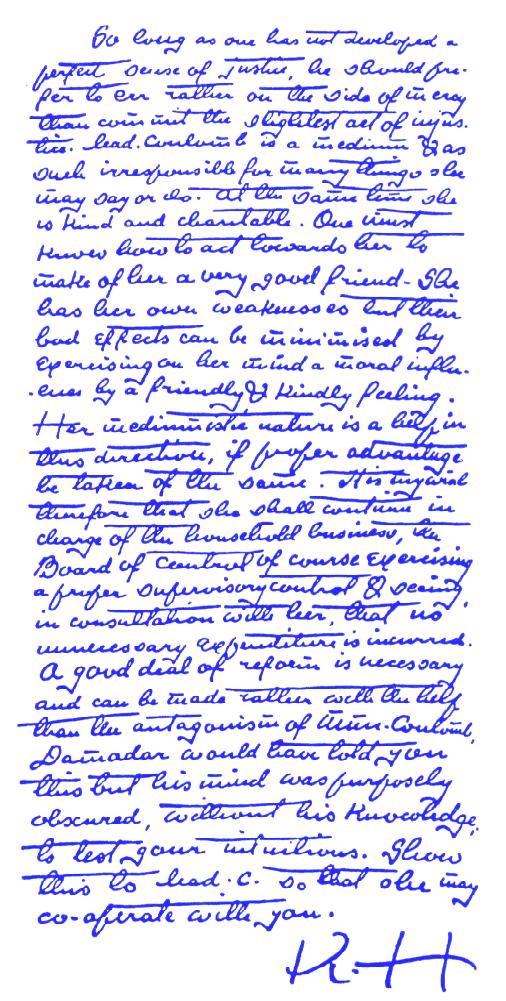 So long as one has not developed a
perfect sense of justice, he should pre-
fer to err rather on the side of mercy
than commit the slightest act of injus-
tice. Mad. Coulomb is a medium & as
such irresponsible for many things she
may say or do. At the same time she
is kind and charitable. One must
know how to act towards her to
make of her a very good friend. She
has her own weaknesses but their
bad effects can be minimised by
exercising on her mind a moral influ-
ence by a friendly & kindly feeling.
Her mediumistic nature is a help in
this direction, if proper advantage
be taken of the same. It is my wish
therefore that she shall continue in
charge of the household business, the
Board of Control of course exercising
a proper supervisory control & seeing
in consultation with her, that no
unnecessary expenditure is incurred.
A good deal of reform is necessary
and can be made rather with the help
than the antagonism of Mme. Coulomb.
Damodar would have told you
this but his mind was purposely
obscured, without his knowledge,
to test your intuitions. Show
this to Mad. C. so that she may
co-operate with you.
K. H